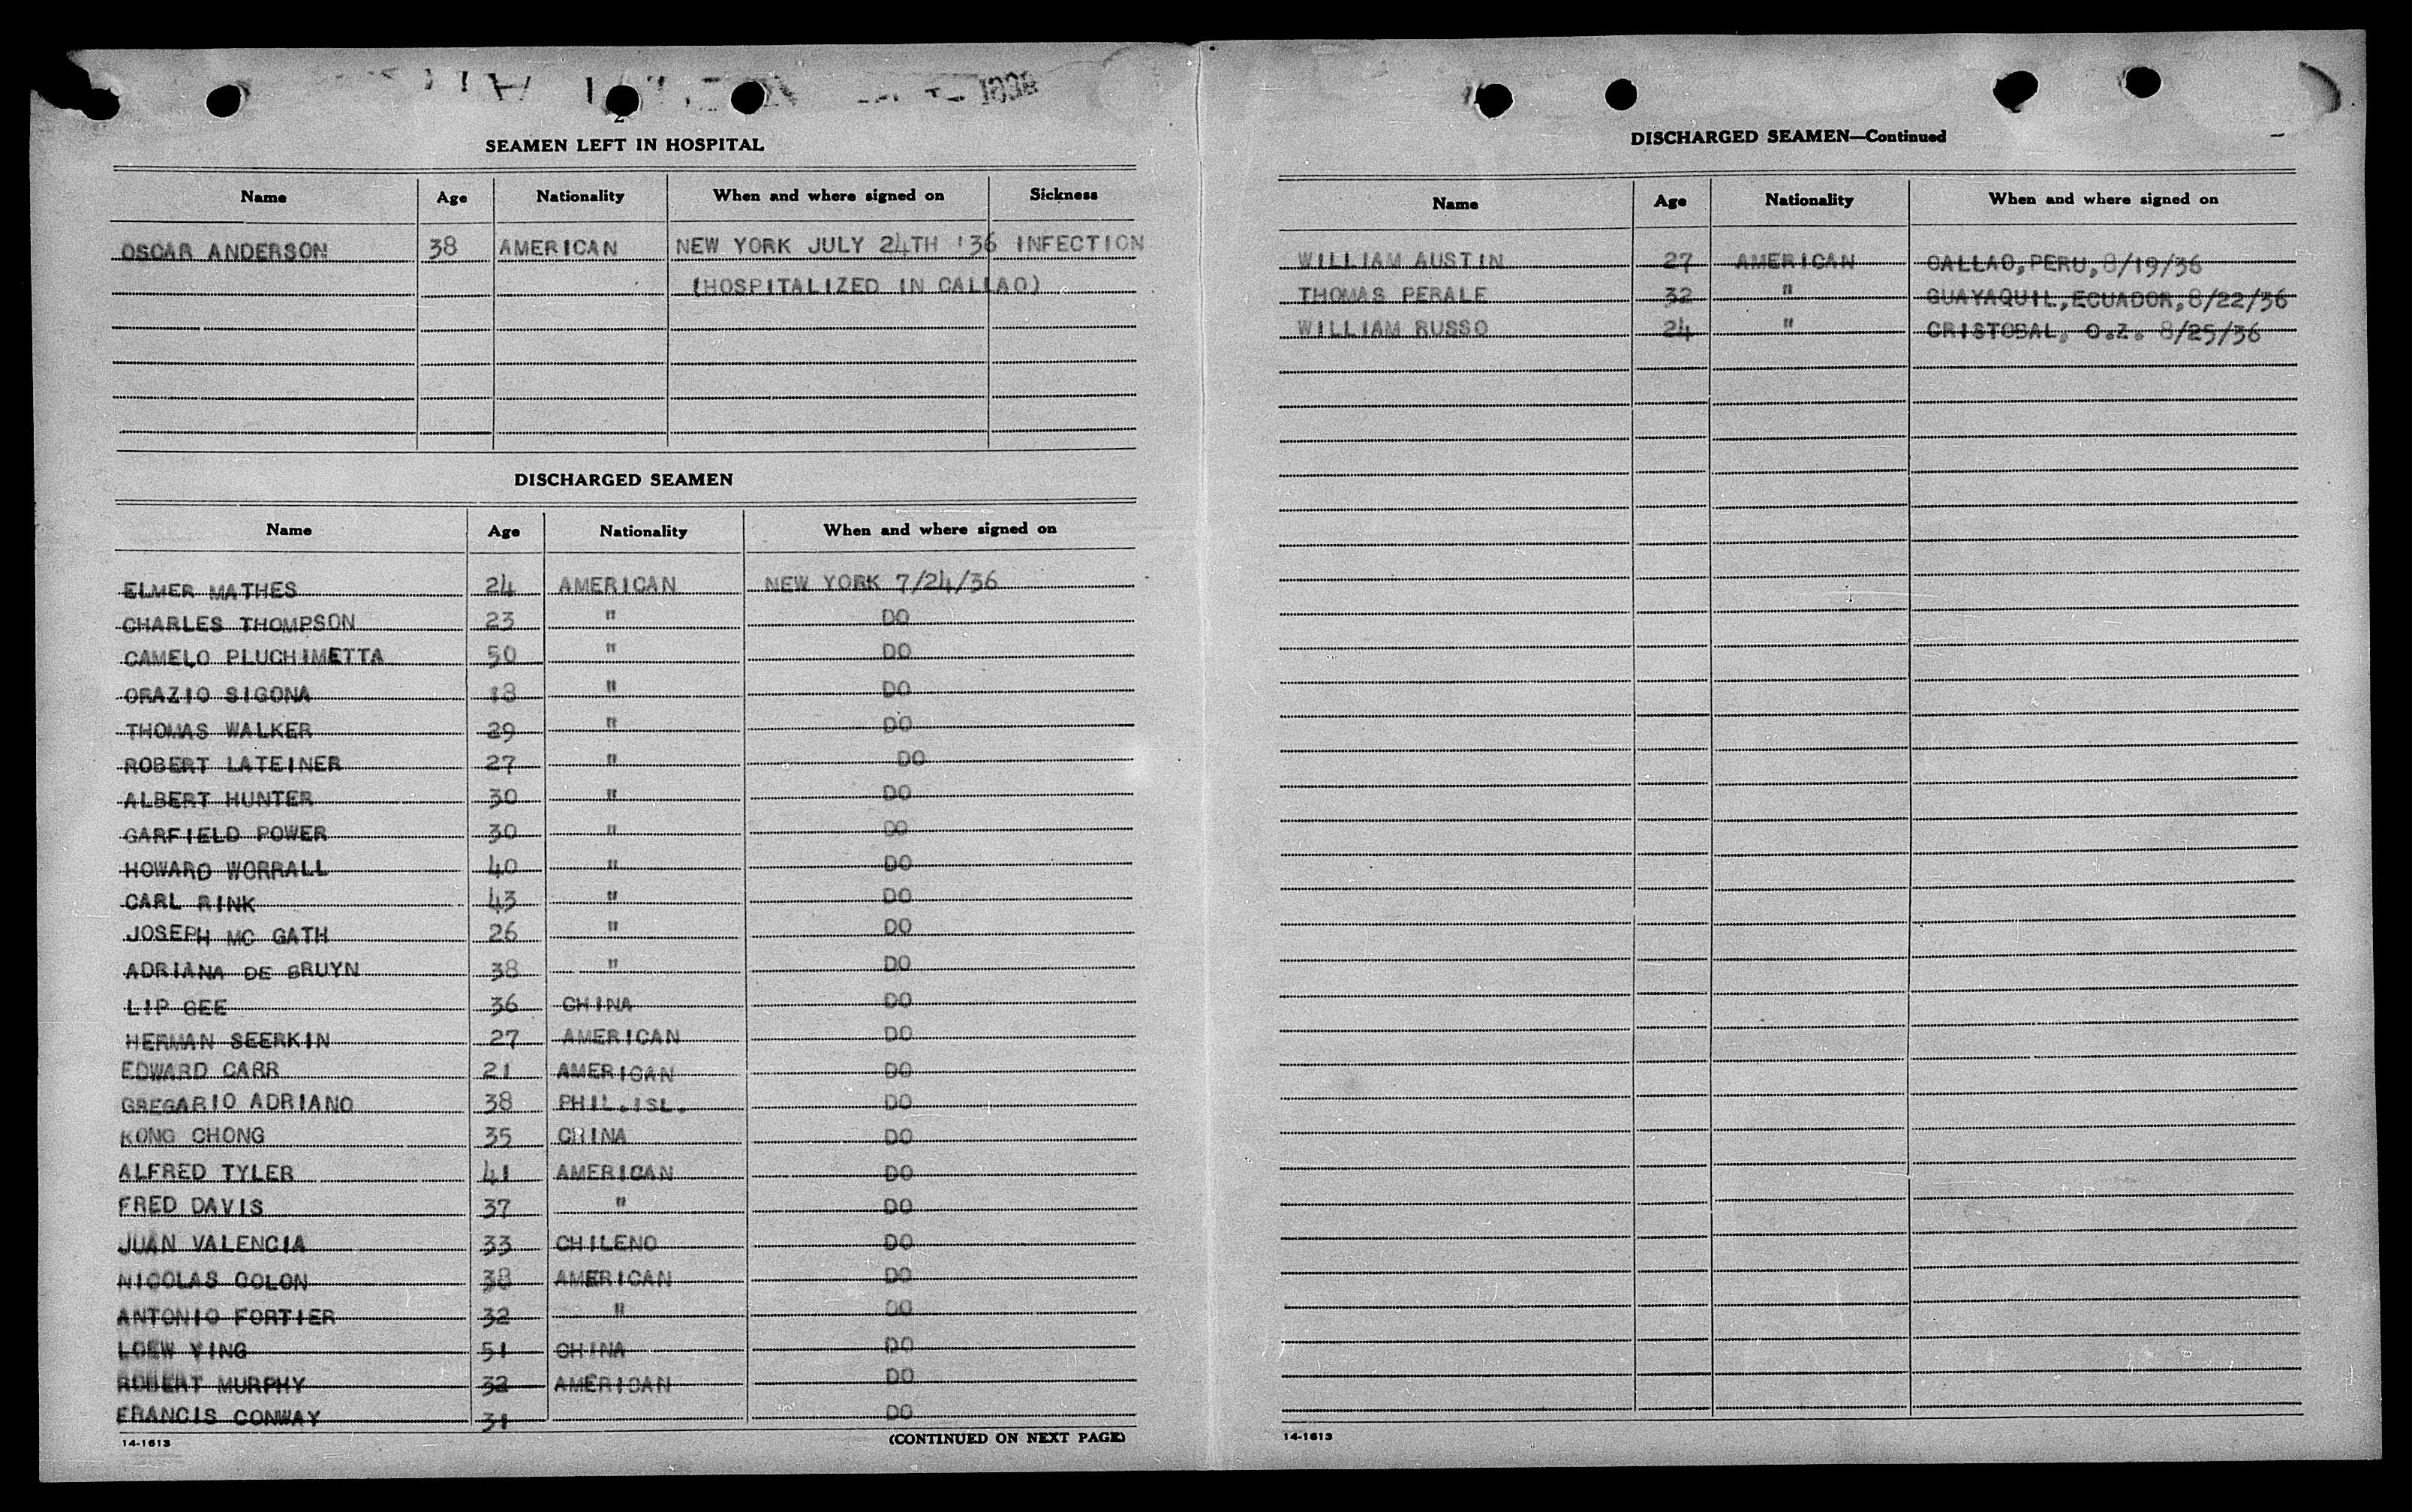 1936
2
SEAMEN LEFT IN HOSPITAL
Name Age Nationality When and where signed on Sickness
OSCAR ANDERSON 38 AMERICAN NEW YORK JULY 24TH '36 INFECTION
(HOSPITALIZED IN CALLAO)
DISCHARGED SEAMEN
Name Age Nationality When and where signed on
ELMER MATHES 24 AMERICAN NEW YORK 7/24/36
CHARLES THOMPSON 23 " DO
CAMELO PLUCHIMETTA 50 " DO
ORAZIO SIGONA 18 " DO
THOMAS WALKER 29 " DO
ROBERT LATEINER 27 " DO
ALBERT HUNTER 30 " DO
GARFIELD POWER 30 " DO
HOWARD WORRALL 40 " DO
CARL RINK 43 " DO
JOSEPH MC GATH 26 " DO
ADRIANA DE BRUYN 38 " DO
LIP GEE 36 CHINA DO
HERMAN SEERKIN 27 AMERICAN DO
EDWARD CARR 21 AMERICAN DO
GREGARIO ADRIANO 38 PHIL.ISL. DO
KONG CHONG 35 CHINA DO
ALFRED TYLER 41 AMERICAN DO
FRED DAVIS 37 " DO
JUAN VALENCIA 33 CHILENO DO
NICOLAS COLON 38 AMERICAN DO
ANTONIO FORTIER 32 " DO
LOEW YING 51 CHINA DO
ROBERT MURPHY 32 AMERICAN DO
FRANCIS CONWAY 31 DO
14-1613 (CONTINUED ON NEXT PAGE)
DISCHARGED SEAMEN—Continued
Name Age Nationality When and where signed on
WILLIAM AUSTIN 27 AMERICAN CALLAO, PERU, 8/19/36
THOMAS PERALE 32 " GUAYAQUIL, ECUADOR, 8/22/36
WILLIAM RUSSO 24 " CRISTOBAL, C.Z. 8/25/36
14-1613